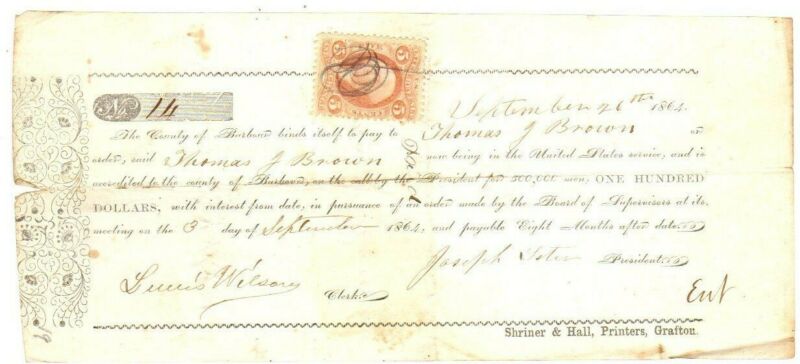 5 5
5 CENTS 5
No. 14
September 26th 1864.
The County of Barbour binds itself to pay to Thomas J Brown or
order, said Thomas J Brown now being in the United States service, and is
accredited to the county of Barbour, on the call by the President for 500,000 men, ONE HUNDRED
DOLLARS, with interest from date, in pursuance of an order made by the Board of Supervisors at its
meeting on the 3 day of September 1864, and payable Eight Months after date.
Joseph Teter President.
Lewis Wilson Clerk.
Ent
Shriner & Hall, Printers, Grafton.